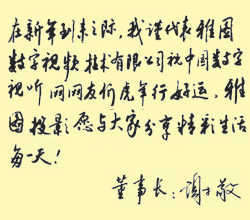 在新年到来之际，我谨代表雅图
数字视频技术有限公司祝中国数字
视听网网友们虎年行好运，雅
图投影愿与大家分享精彩生活
每一天！
董事长：